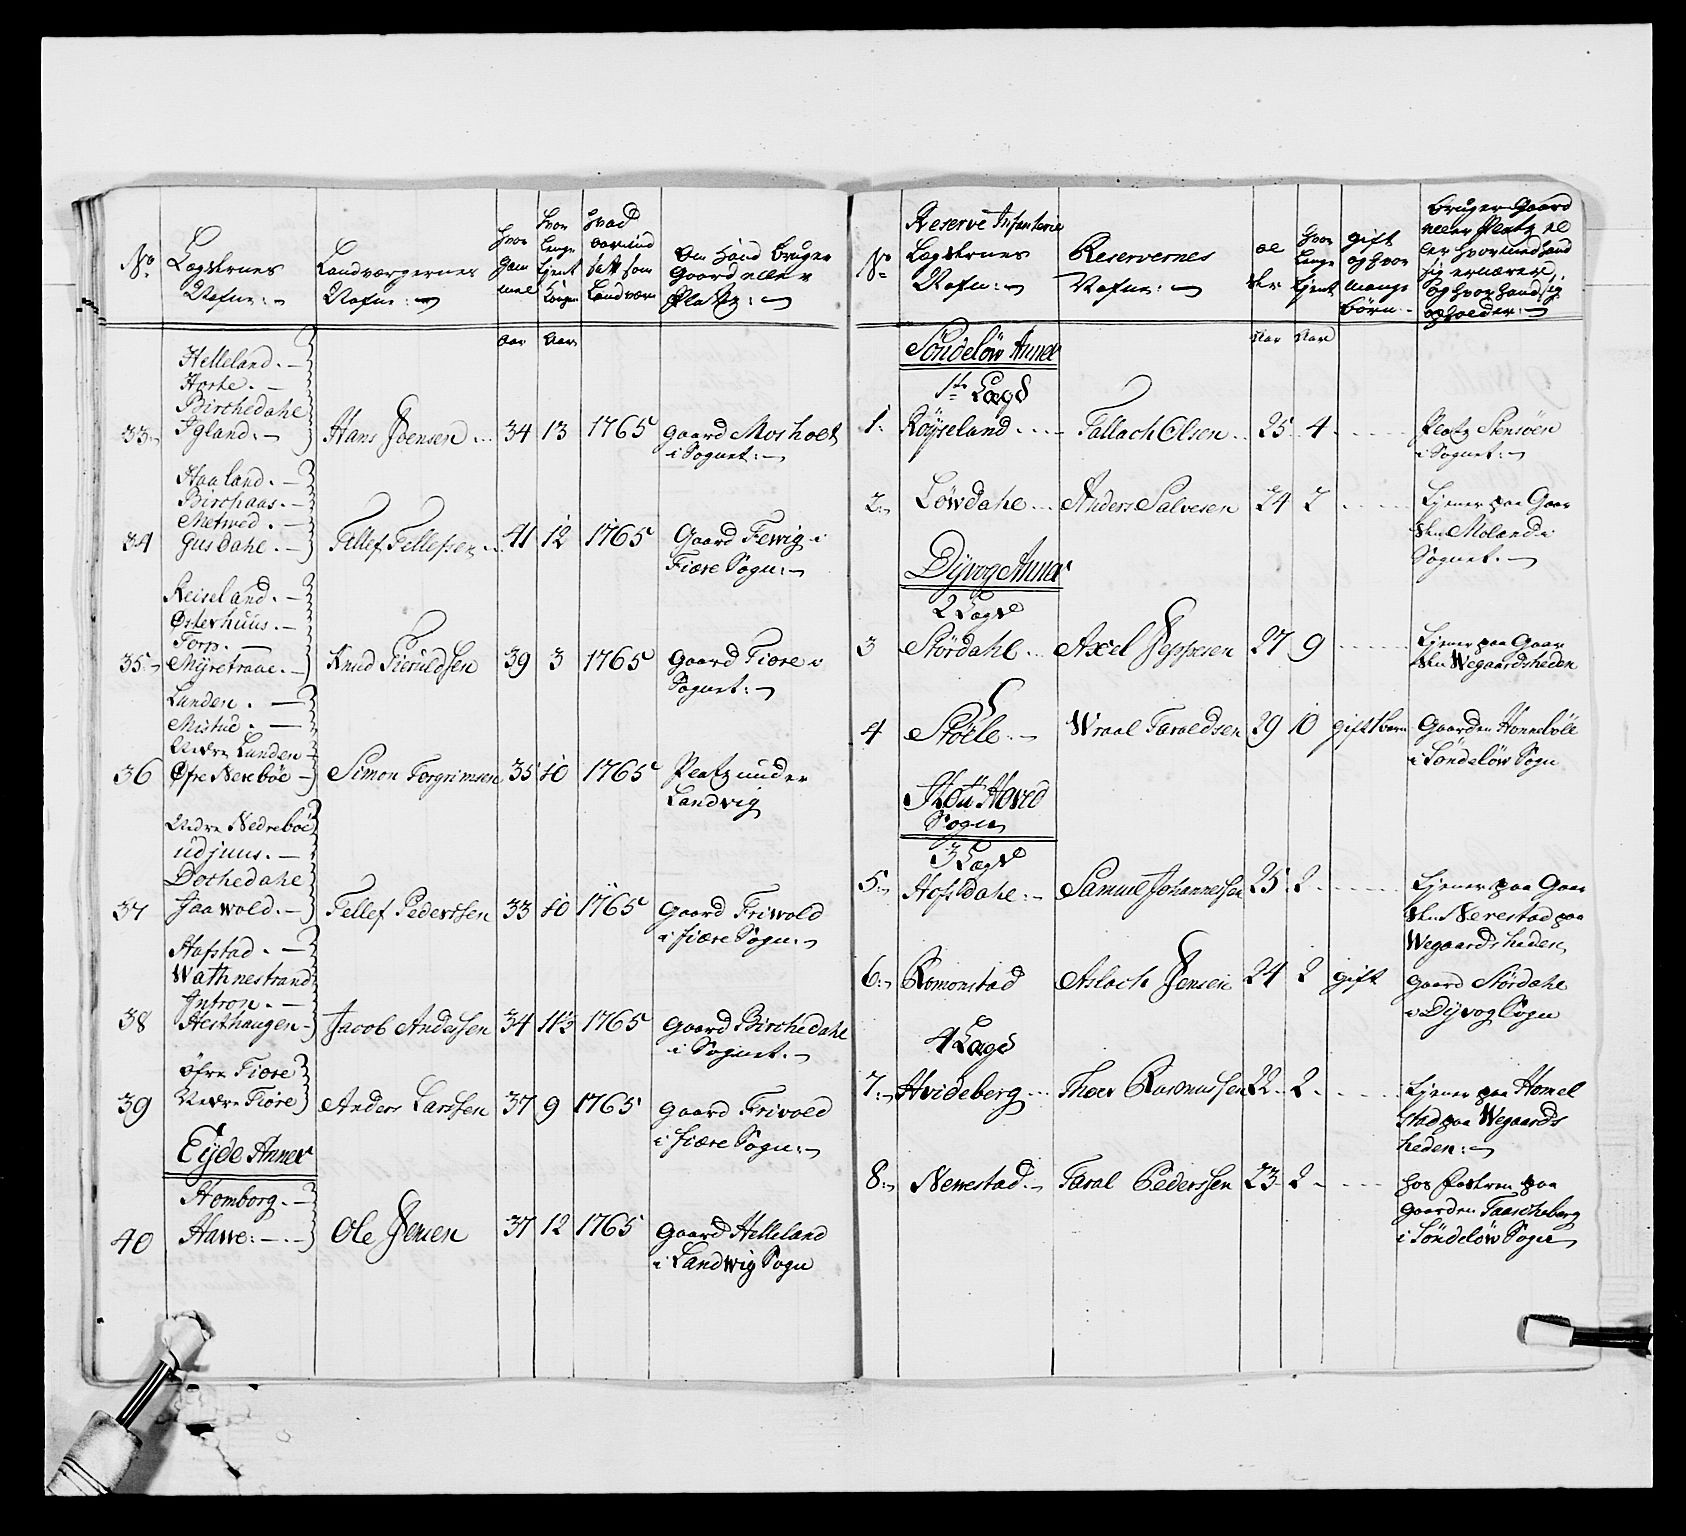 No
Lægdernes
Nafne:
Landværgernes
Nafne:
Hvor
gam
mel
Hvor
lenge
tient
Kongen
Hvad
Aar ind
satt som
Landværn
Om hand bruger
Gaard eller
Platz:
aar aar
Helleland.
Horte.
Birchedahl
33 Igland. Hans Joensen 34 13 1765 gaard Mosholt
i Sognet:
Haaland.
Birchaas.
Metwed.
34 Gusdahl. Tellef Tellefsen 41 12 1765 Gaard Fewig i
Fiære Sogn:
Reiseland.
Østerhuus.
Torp.
35 Myretraae. Knud Siereldsen 39 3 1765 gaard Fiære i
Sognet:
Lunden.
Mistue.
Nedre Lunden
36 Øfre Nerebøe Simon Torgrimsen 35 10 1765 Platz under
Landvig
Nedre Nedrebøe
udjuus.
Dochedahl
37 Saawold. Tellef Pedersen 33 10 1765 gaard Friwold
i fiære Sogn:
Hafstad.
Wathnestrand
Intron.
38 Hesthaugen Jacob Andersen 34 11½ 1765 gaard Birchedahl
i Sognet.
Øfre Fiære
39 Nedre Fiøre Anders Larssen 37 9 1765 gaard Frivold
i fiære Sogn:
Eyde Annex
Homborg.
40 Hawe: Ole Jensen 37 12 1765 gaard Helleland
i Landwig Sogn
No
Reserve Infanterie
Lægdernes
Nafn:
Reservernes
Nafne:
al
der
Hvor
lenge
tient
gift
og hvor
mange
børn
bruger Gaard
eller Platz el
ler hvormed hand
sig ernærer,
og hvor hand sig
opholder:
Aar Aar
Søndeløw Annex
1te Lægd
1. Røyseland Tallach Olsen 25 4 Platz Stensøen
i Sognet:
2. Løwdahl Anders Salvesen 24 2 tiener paa Gaar
den Moland i
Sognet.
Dyvog Annex
2 Lægd
3 Stördahl Axel Jeppesen 27 9 tiener paa Gaar
den Wegaardsheden
4 Støele Wraal Taraldsen 29 10 gift 1 barn Gaarden Honnebøle
i Søndeløw Sogn
Sogn
3 Lægd
5. Hofsdahl: Samuel Johannessen 25 2 tiener paa Gaar
den Nerestad paa
Wegaardsheden,
6. Romonstad Aslach Jensen 24 2 gift gaard Stördahl
i Dyvog Sogn
4 Lægd
7. Hvideberg Thoer Rasmussen 22 2 tiener paa Homel
stad paa Wegaards
heden:
8. Nerrestad. Taral Pederssen 23 2 hos fadren paa
gaarden Taascheberg
i Søndeløw Sogn